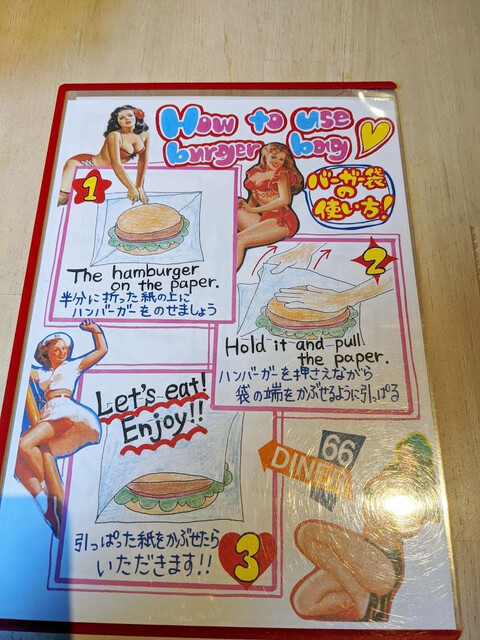 How to use
burger bag
バーガー袋
の
使い方!
1
The hamburger
on the paper.
半分に折った紙の上に
ハンバーガーをのせましょう
2
Hold it and pull
the paper.
ハンバーガーを押さえながら
袋の端をかぶせるように引っぱる
Let's eat!
Enjoy!!
引っぱった紙をかぶせたら
いただきます!!
3
66
DINER